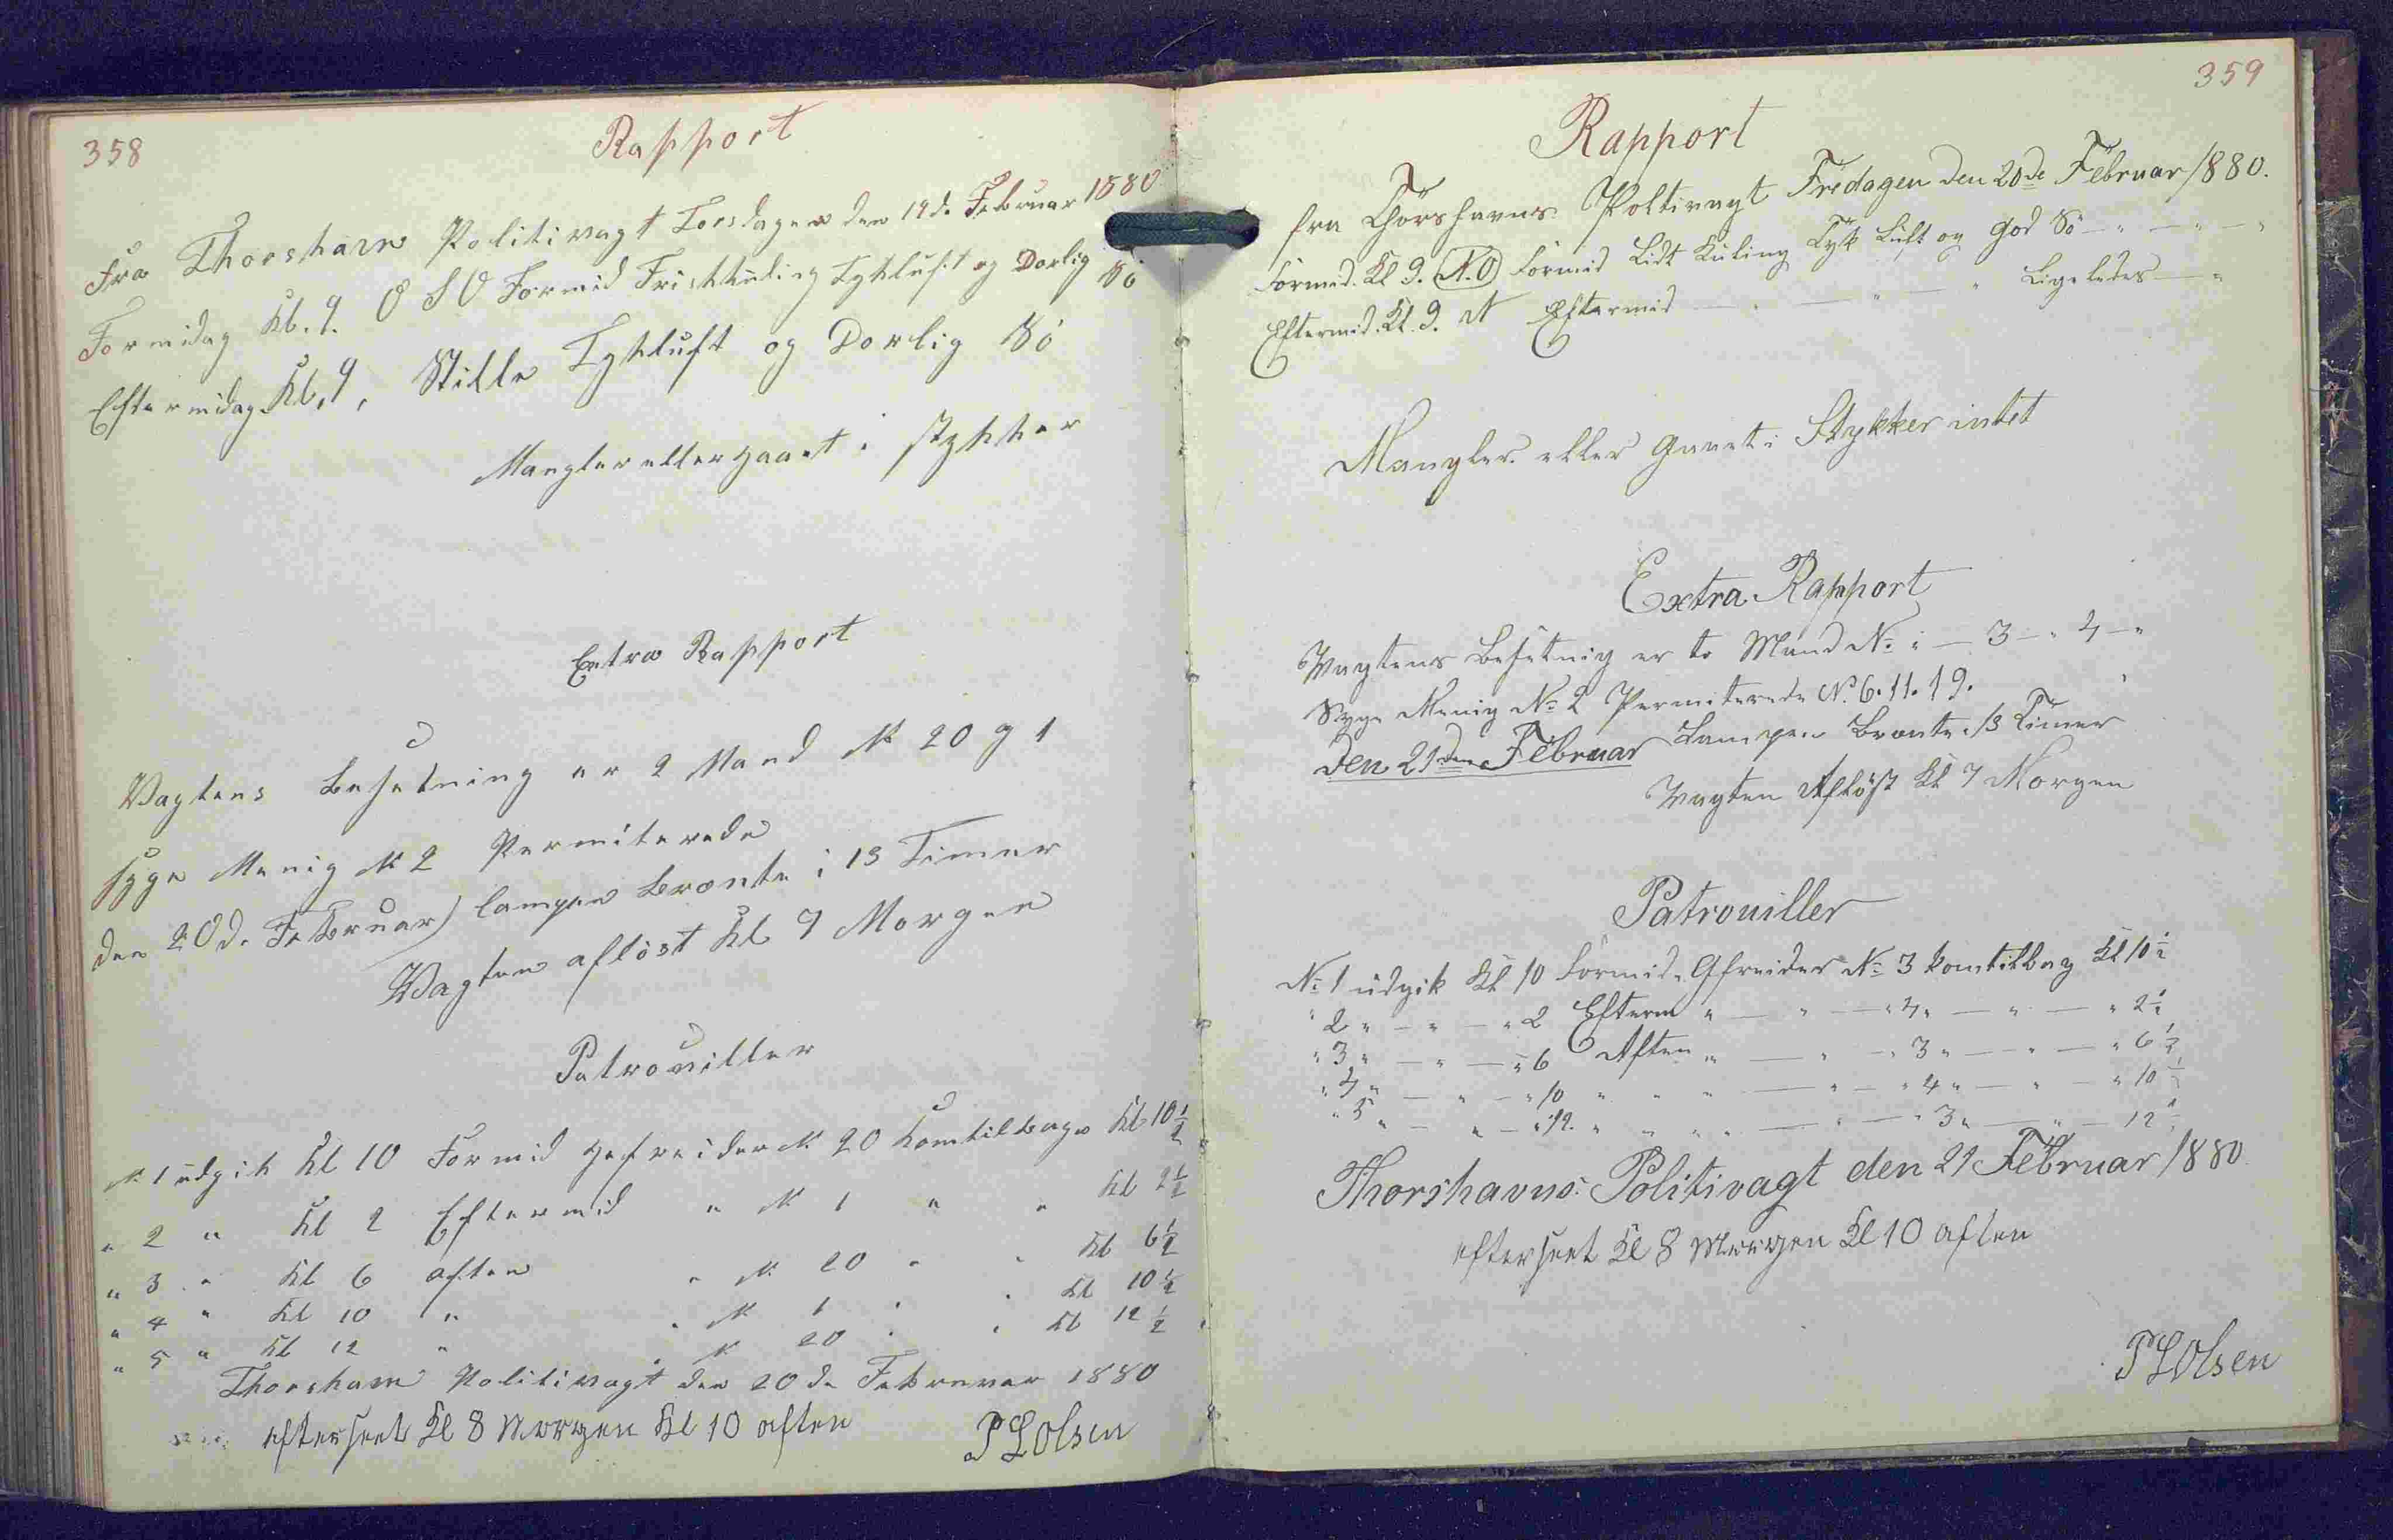 358
Rapport
Fra Thorshavn Politivagt Torsdagen den 19d. Februar 1880
Formidag Kl. 9. O S O Formid Friskkuling Tykluft og Dorlig Sö
Eftermidag Kl. 9, Stille Tykluft og Dorlig Sö
Mangler eller gaaet i stykker
Extra Rapport
Vagtens Besetning er 2 Mand N 20 g 1
syge Menig N 2 Permiterede
den 20d. Februar) lampen Brænte i 13 Timer
Vagten aflöst Kl 7 Morgen
Patrouiller
N. 1 udgik Kl 10 Formid Gefreider N. 20 komtilbage Kl 10 1/2
" 2 " Kl 2 Eftermid " N 1 " " Kl 2 1/2
" 3 " Kl 6 aften " N. 20 " " Kl 6 1/2
" 4 " Kl 10 " " N 1 " " Kl 10 1/2
" 5 " Kl 12 " " N 20 " " Kl 12 1/2
Thorshavn Politivagt den 20 de Februvar 1880
efterseet Kl 8 Morgen Kl 10 aften
P L Olsen
359
Rapport
fra Thörshavns Poltivagt Fredagen den 20de Februar 1880.
Formid. Kl 9. N.O Formid Lidt Kuling Tyk Luft og god Sö — " — " — "
Eftermid. Kl. 9. N Eftermid — " — " — " Ligeledes — "
Mangler eller gaaet i Stykker intet
Extra Rapport
Vagtens Besetnig er to Mand No: — 3 — " 4 — "
Syge Menig No 2 Permiterede No. 6. 11. 19.
Den 21den Februar Lampen Brænte 13 Timer
Vagten Aflöst Kl 7 Morgen
Patrouiller
No 1 udgik Kl 10 Formid. Gfreider No 3 komtilbag Kl 10 1/2
" 2 " — " — " 2 Efterm " — " — " 4 " — " — " 2 1/2
" 3 " — " — " 6 Aften " — " — " 3 " — " — " 6 1/2
" 4 " — " — " 10 " " " — " — " 4 " — " — " 10 1/2
" 5 " — " — " 12. " " " " — " — " 3 " — " — 12 1/2
Thorshavns Politivagt den 21 Februar 1880
efterseet Kl 8 Morgen Kl 10 aften
P L Olsen